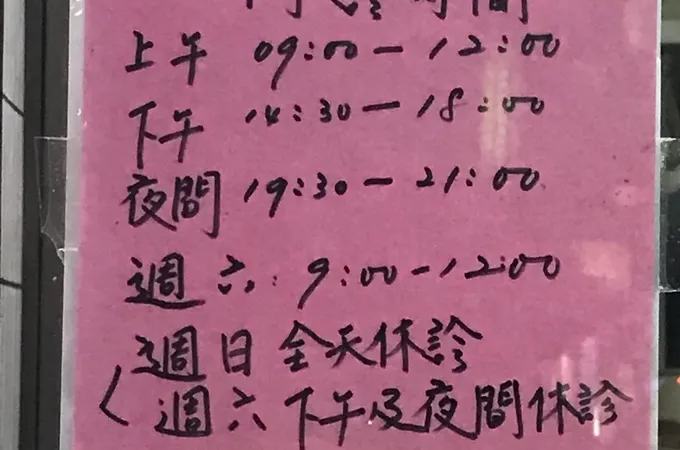 門診時間
上午 09:00－12:00
下午 14:30－18:00
夜間 19:30－21:00
週六: 9:00－12:00
週日全天休診
(週六下午及夜間休診